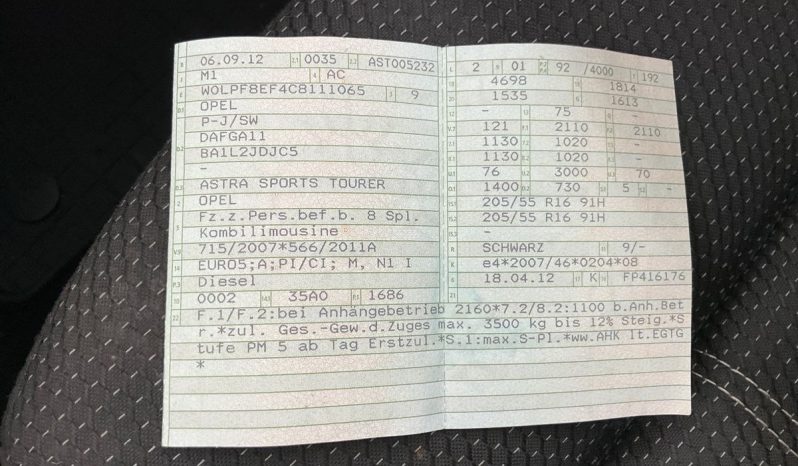 06.09.12 0035 AST005232
M1 AC
W0LPF8EF4C8111065 9
OPEL
P-J/SW
DAFGA11
BA1L2JDJC5
-
ASTRA SPORTS TOURER
OPEL
Fz.z.Pers.bef.b. 8 Spl.
Kombilimousine
715/2007*566/2011A
EURO5;A;PI/CI; M, N1 I
Diesel
0002 35A0 1686
L 2 9 01 92 /4000 T 192
4698 1814
1535 1613
- 75 -
121 2110 2110
1130 1020 -
1130 1020 -
76 3000 70
1400 730 5 -
205/55 R16 91H
205/55 R16 91H
-
R SCHWARZ 11 9/-
K e4*2007/46*0204*08
6 18.04.12 17 K 16 FP416176
21
22 F.1/F.2:bei Anhängebetrieb 2160*7.2/8.2:1100 b.Anh.Bet
r.*zul. Ges.-Gew.d.Zuges max. 3500 kg bis 12% Steig.*S
tufe PM 5 ab Tag Erstzul.*S.1:max.S-Pl.*ww.AHK lt.EGTG
*